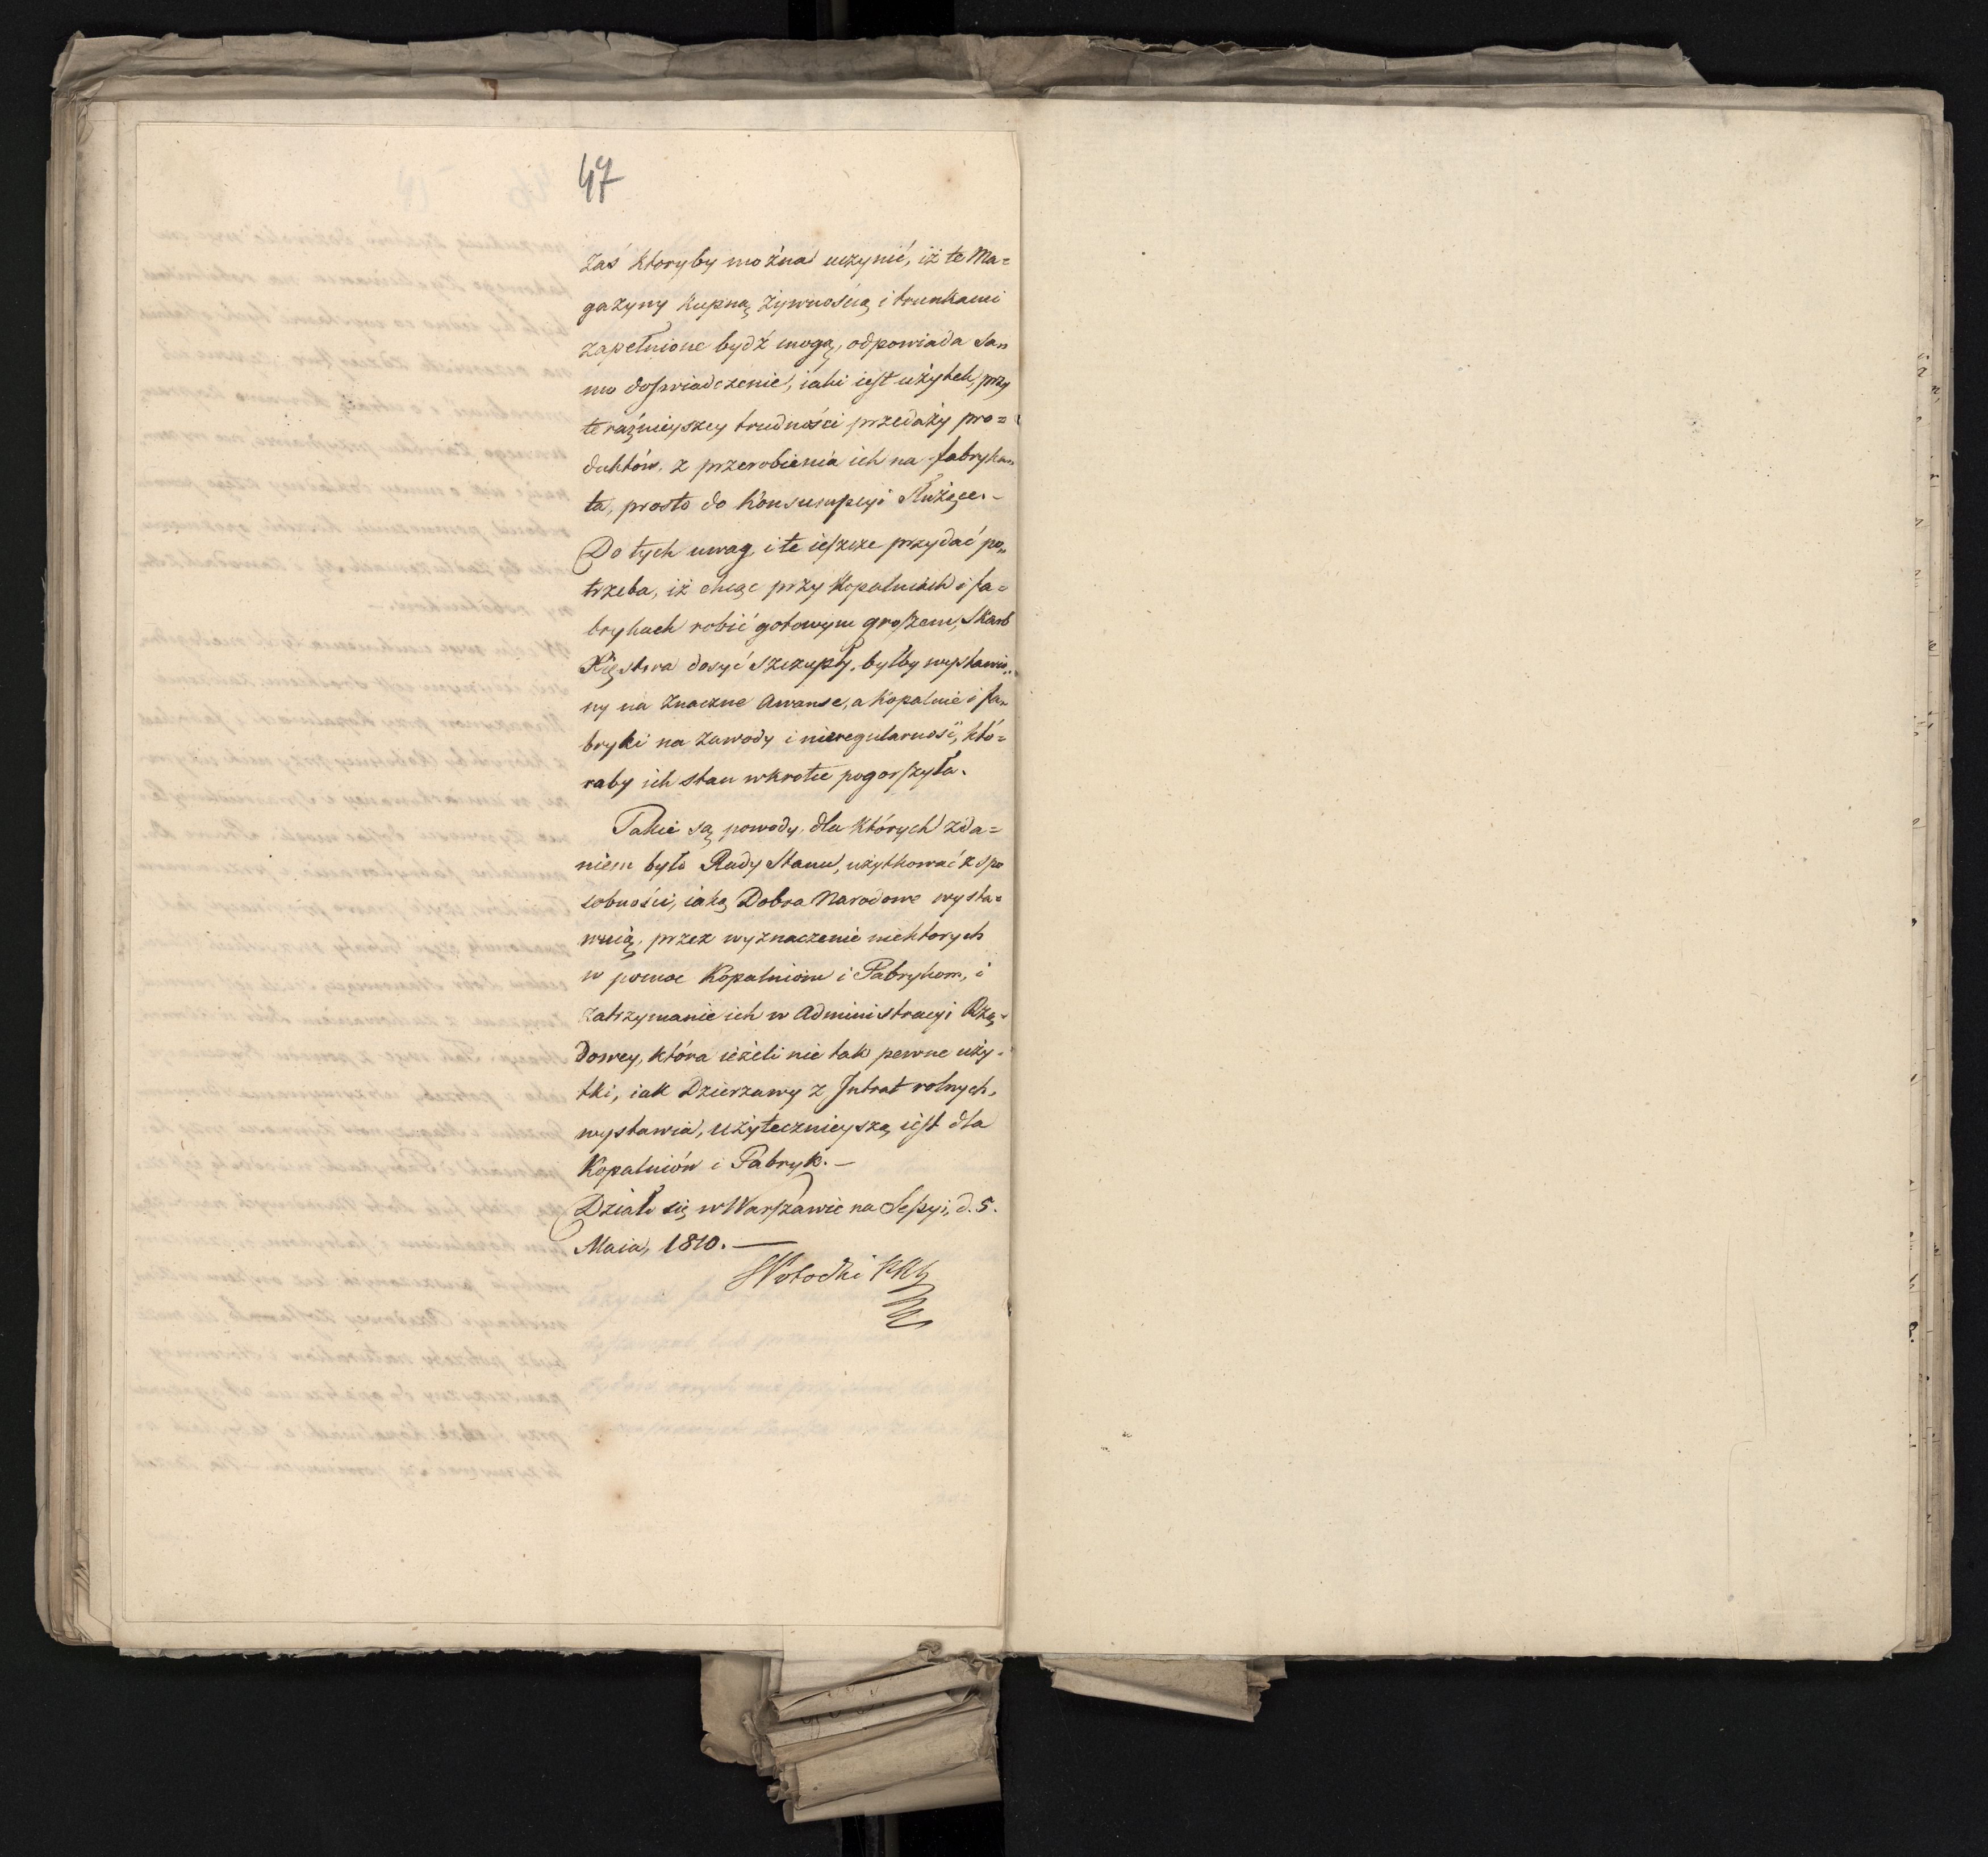 47
zaś ktoryby można uczynić, iż te Ma=
gazyny kupną żywnością i trunkami
zapełnione bydź mogą, odpowiada sa„
mo doſwiadczenie, iaki ieſt użytek, przy
teraźnieyszey trudności przedaży pro=
duktów, z przerobienia ich na fabryka„
ta, prosto do konsumpcyi służące. –
Do tych uwag i te ieſzcze przydać po„
trzeba, iż chcąc przy Kopalniach i fa=
brykach robić gotowym groſzem, Skarb
Xięstwa dosyć szczupły, byłby wystawio„
ny na znaczne Awanse, a Kopalnie i fa„
bryki na zawody i nieregularność, któ=
raby ich stan wkrotce pogorſzyła.
Takie są powody, dla których zda=
niem było Rady Stanu, użytkować z spo
sobności, iaką Dobra Narodowe wysta=
wuią, przez wyznaczenie niektorych
w pomoc Kopalniom i Fabrykom, i
zatrzymanie ich w Administracyi Rzą=
dowey, która ieżeli nie tak pewne uży=
tki, iak Dzierżawy z Intrat rolnych,
wystawia, użytecznieyszą ieſt dla
Kopalniów i Fabryk. –
Działo się w Warſzawie na Seſsyi, d. 5.
Maia, 1810. –